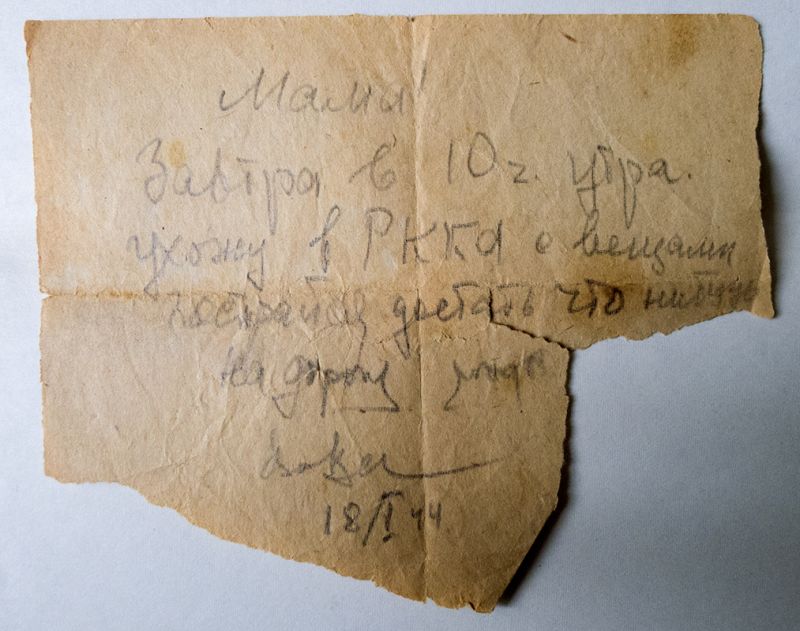 Мама!
Завтра в 10 г. утра.
ухожу в РККА с вещами
постарайся достать что нибудь
на дорогу
18/I 44